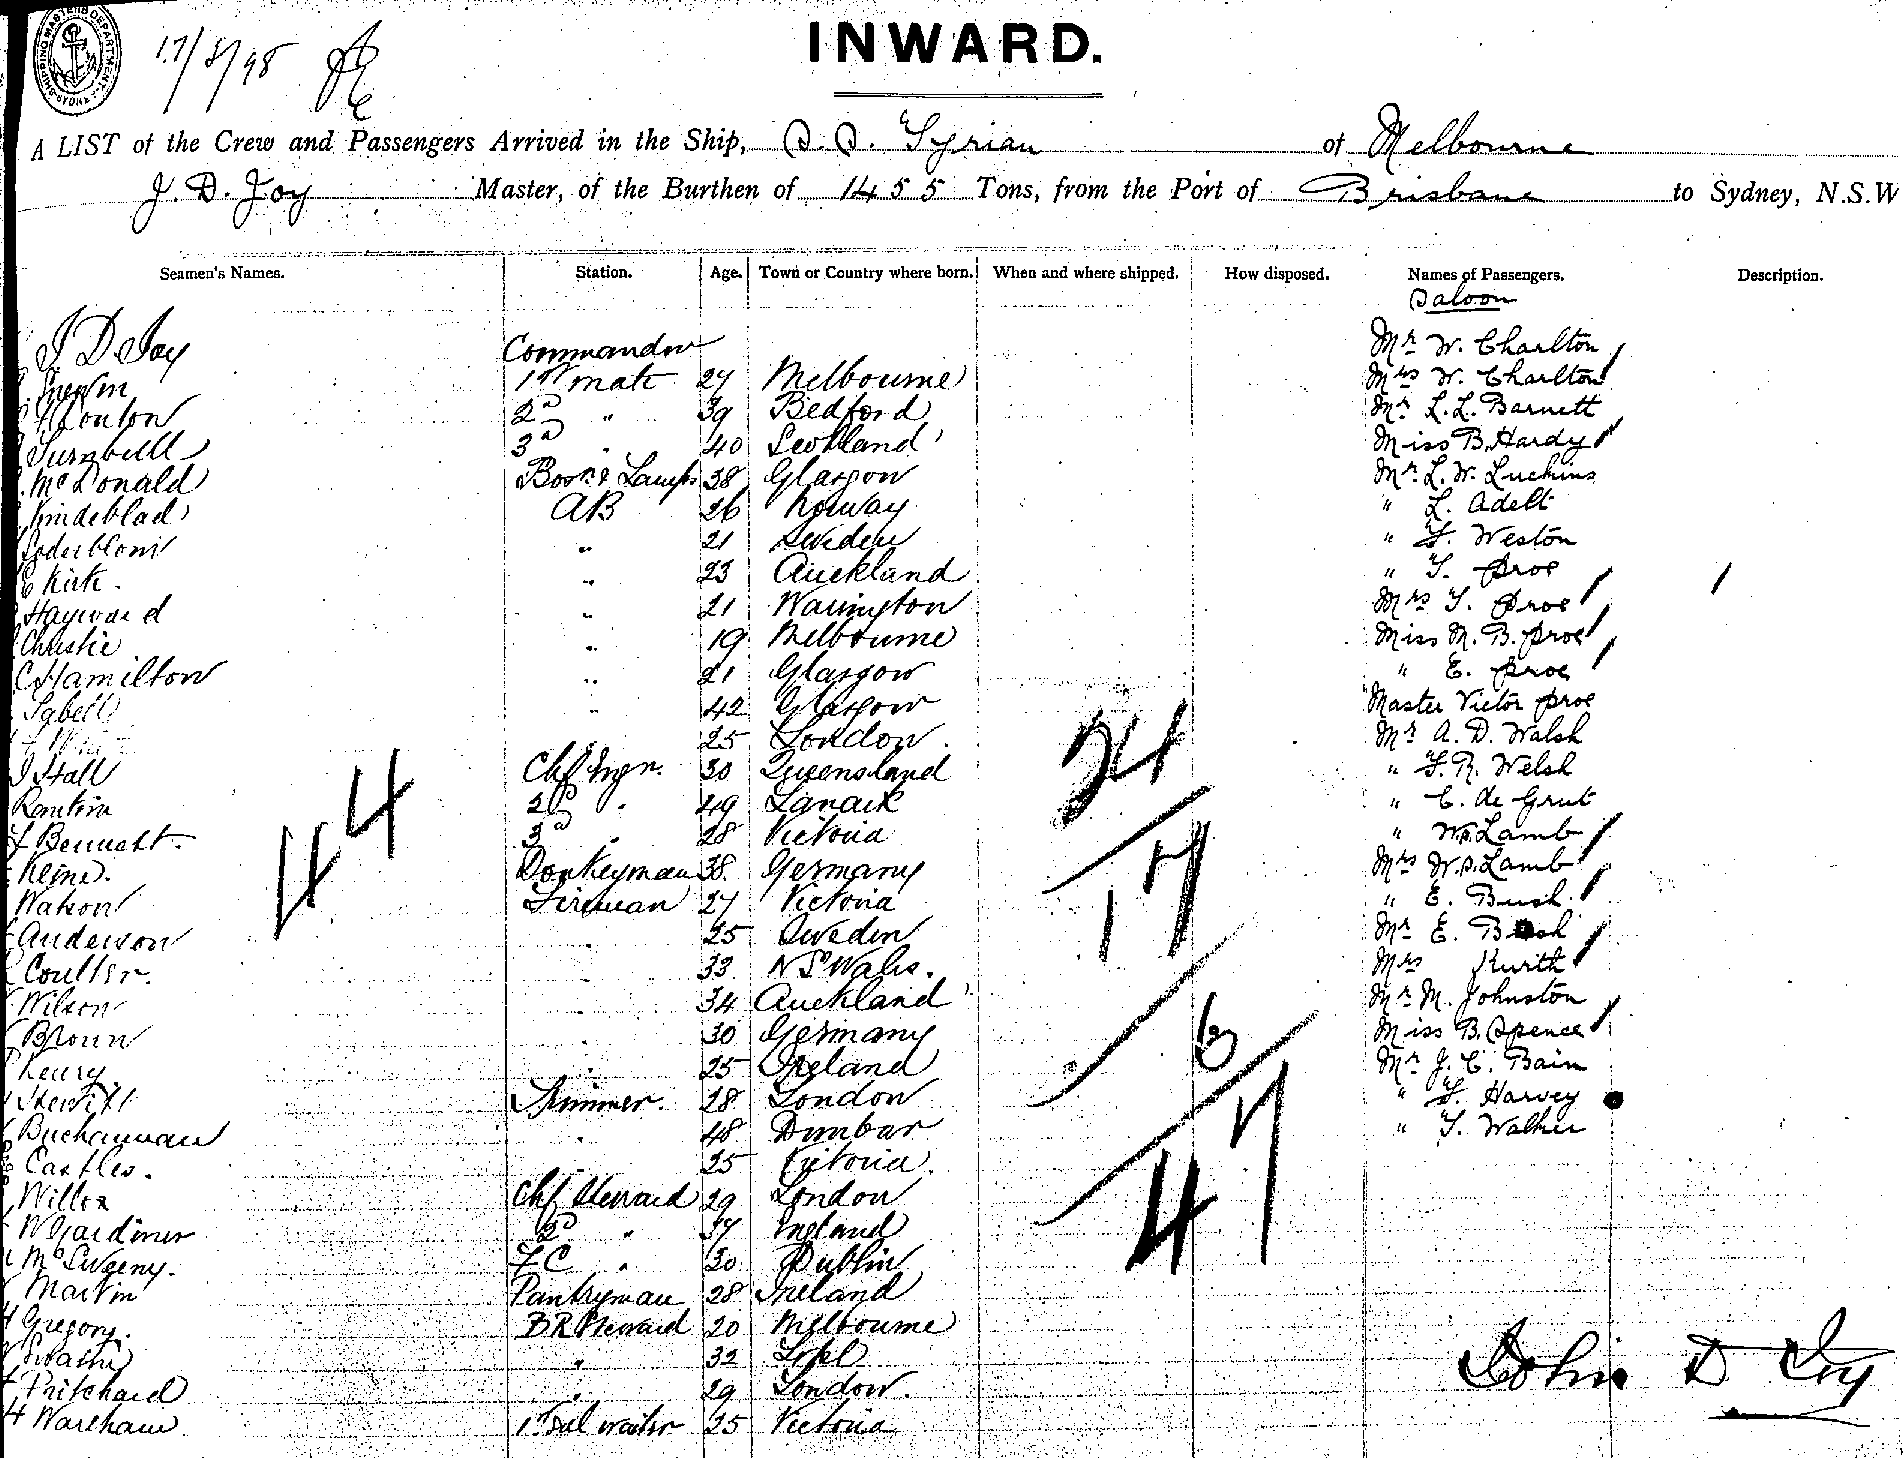 SHIPPING MASTERS DEPARTMENT SYDNEY
17/3/98
INWARD.
A LIST of the Crew and Passengers Arrived in the Ship, S.S. Tyrian of Melbourne
J. D. Joy Master, of the Burthen of 1455 Tons, from the Port of Brisbane to Sydney, N.S.W
Seamen's Names. Station. Age. Town or Country where born. When and where shipped. How disposed. Names of Passengers. Description.
Saloon
J D Joy Commander Mr W. Charlton
1st mate 27 Melbourne Mrs W. Charlton
2d " 39 Bedford Mr L. L. Barnett
Turnbull 3d " 40 Scotland Miss B. Hardy
McDonald Bosn & Lamps 38 Glasgow Mr L. W. Luckins
Lindeblad AB 26 Norway " L. Adelt
Soderblom " 21 Sweden " F. Weston
Kirk " 23 Auckland " T. Proe
Hayward " 21 Warington Mrs T. Proe
Christie " 19 Melbourne Miss M. B. Proe
C Hamilton " 21 Glasgow " E. Proe
" 42 Glasgow Master Victor Proe
25 London Mr A. D. Walsh
J Hall Chf Engr. 30 Queensland " F. R. Welsh
Rankin 2d " 49 Lanark " C. de Grut
Bennett 3d " 28 Victoria " W. S. Lamb
Keine Donkeyman 38 Germany Mrs W. S. Lamb
Watson Fireman 27 Victoria " E. Bush
Anderson 25 Sweden Mr E. Bush
Coulter. 33 N S Wales. Mrs Kurth
Wilson 34 Auckland Mr M. Johnston
Broun 30 Germany Miss B. Spence
25 Ireland Mr J. C. Bain
Hewitt Trimmer. 28 London " F. Harvey
Buchannan 48 Dunbar " T. Walker
Castles. 25 Victoria.
Willox Chf Steward 29 London
W Gardiner 2d " 37 England
McSweeny. F C " 30 Dublin
Martin Pantryman 28 Ireland
Gregory. B R Steward 20 Melbourne
" 32 Lpl
Pritchard " 29 London.
Wareham 1st Sal waiter 25 Victoria
44
24
17
6
47
John D Joy